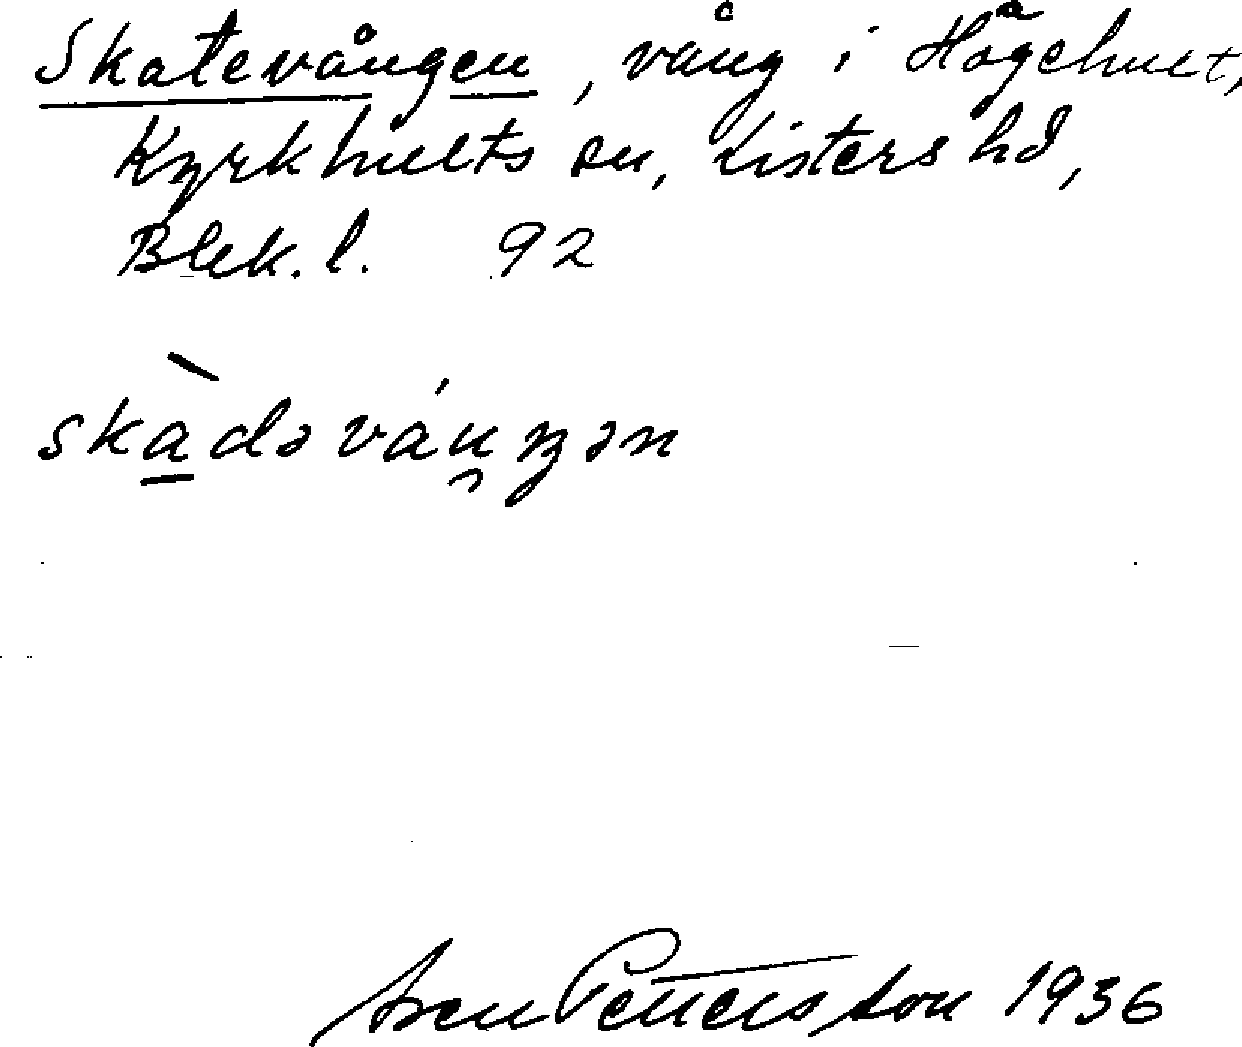 Skatevången, vång i Högehult,
Kyrkhults sn, Listers hd,
Blek. l. 92
skàdəváŋən
Sven Pettersson 1936